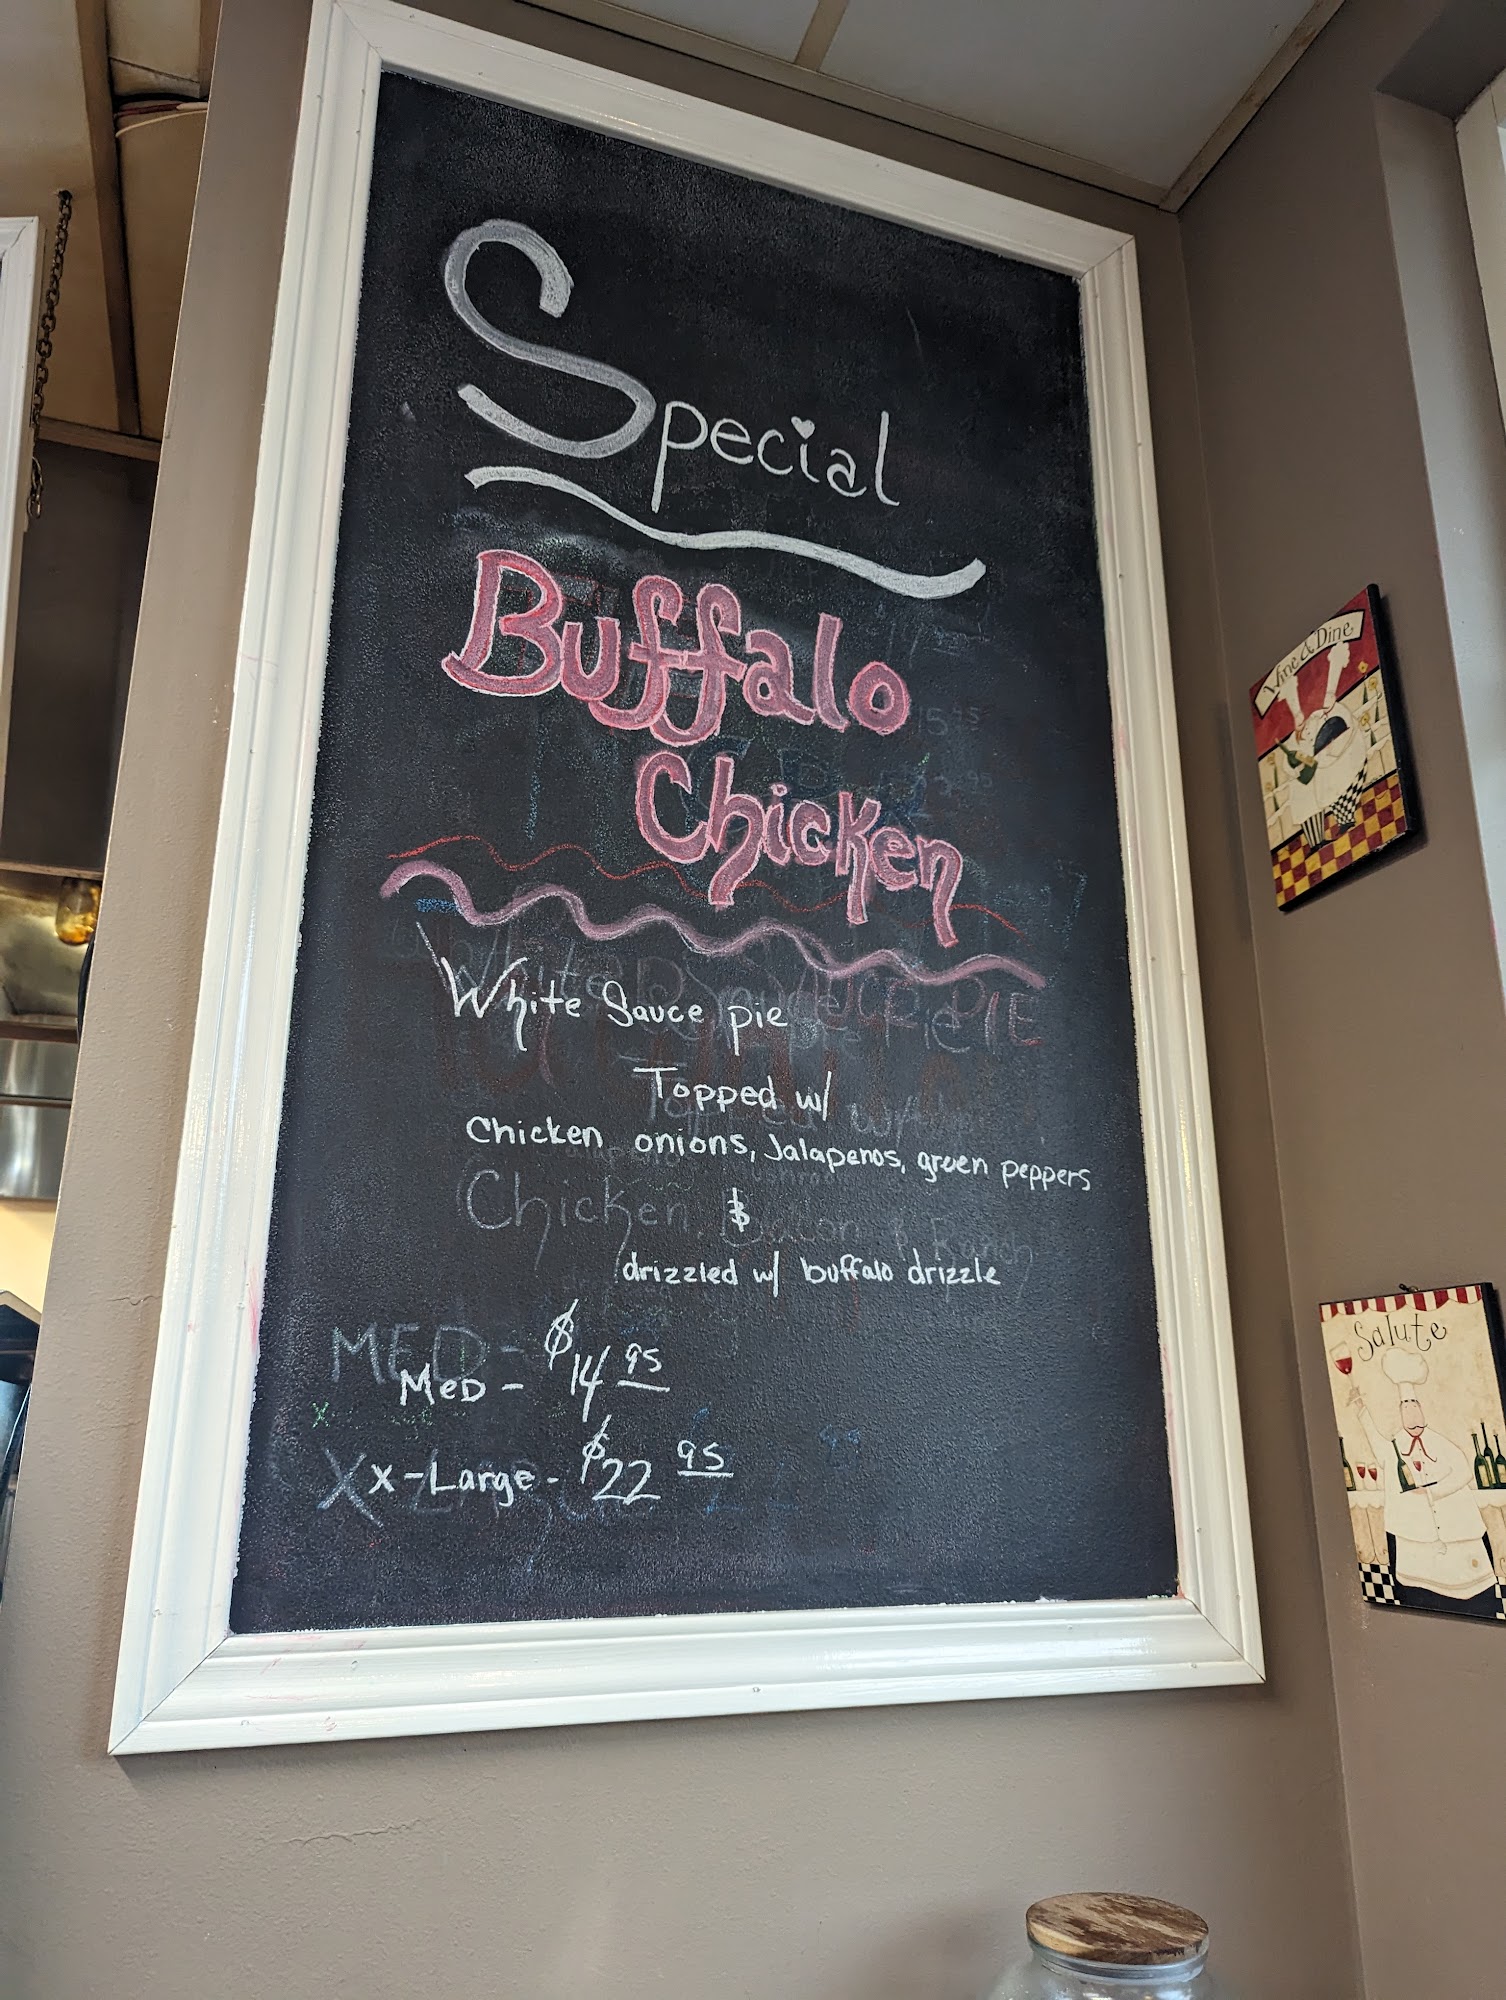 Special
Buffalo
Chicken
White Sauce pie
Topped w/
Chicken onions, Jalapenos, green peppers
&
drizzled w/ buffalo drizzle
MED - $14 95
X-Large - $22 95
Wine & Dine
Salute